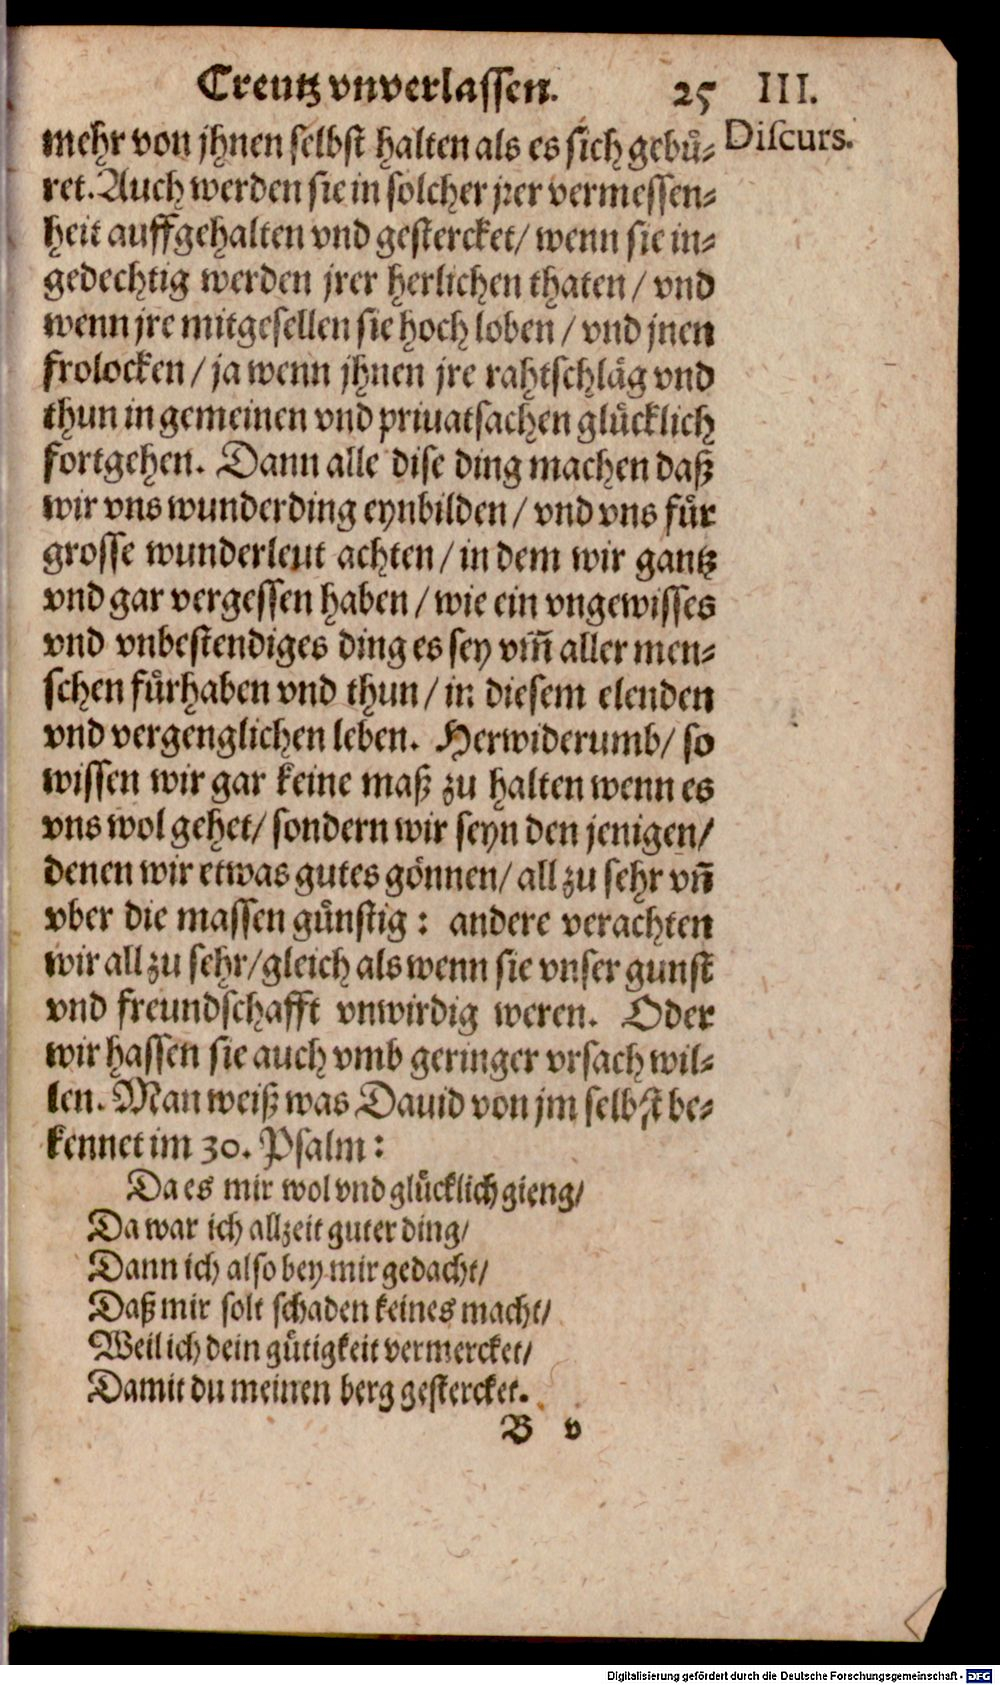 Creutz vnverlassen. 25 III.
mehr von jhnen selbst halten als es sich gebuͤ- Discurs.
ret. Auch werden sie in solcher jrer vermessen-
heit auffgehalten vnd gestercket/ wenn sie in-
gedechtig werden jrer herlichen thaten / vnd
wenn jre mitgesellen sie hoch loben / vnd jnen
frolocken / ja wenn jhnen jre rahtschlaͤg vnd
thun in gemeinen vnd priuatsachen gluͤcklich
fortgehen. Dann alle dise ding machen daß
wir vns wunderding eynbilden / vnd vns fuͤr
grosse wunderleut achten / in dem wir gantz
vnd gar vergessen haben / wie ein vngewisses
vnd vnbestendiges ding es sey vm̃ aller men-
schen fuͤrhaben vnd thun / in diesem elenden
vnd vergenglichen leben. Herwiderumb/ so
wissen wir gar keine maß zu halten wenn es
vns wol gehet/ sondern wir seyn den jenigen/
denen wir etwas gutes goͤnnen/ all zu sehr vñ
vber die massen guͤnstig : andere verachten
wir all zu sehr/gleich als wenn sie vnser gunst
vnd freundschafft vnwirdig weren. Oder
wir hassen sie auch vmb geringer vrsach wil-
len. Man weiß was Dauid von jm selbst be-
kennet im 30. Psalm :
Da es mir wol vnd gluͤcklich gieng/
Da war ich allzeit guter ding/
Dann ich also bey mir gedacht/
Daß mir solt schaden keines macht/
Weil ich dein guͤtigkeit vermercket/
Damit du meinen berg gestercket.
B v
Digitalisierung gefördert durch die Deutsche Forschungsgemeinschaft - DFG